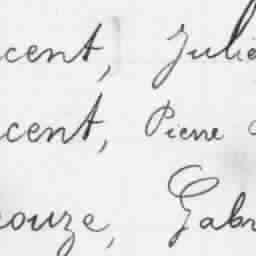 cent, Julie
cent, Pierre
ouze, Gabr